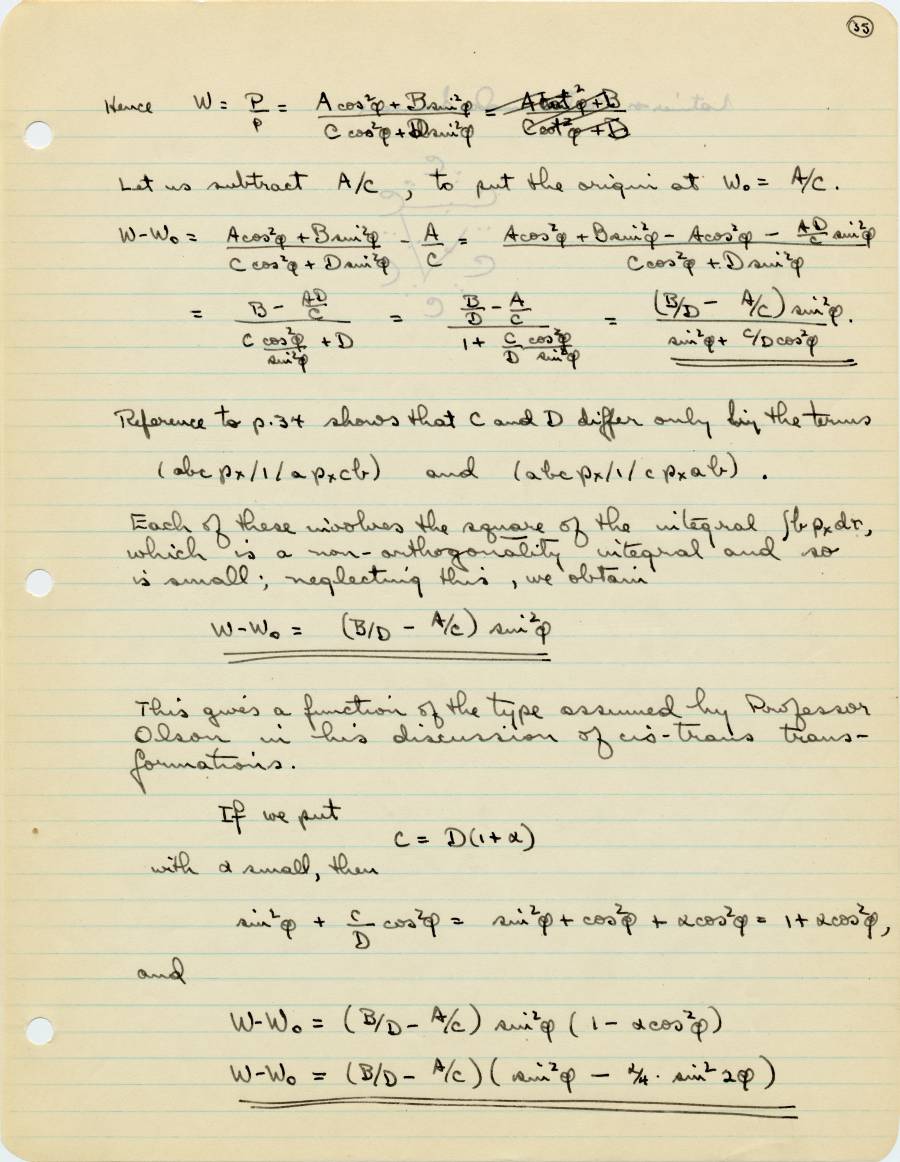 35
Hence W = P/p = (A cos²φ + B sin²φ)/(C cos²φ + D sin²φ) = (A cot²φ + B)/(C cot²φ + D)
Let us subtract A/C, to put the origin at W₀ = A/C.
W-W₀ = (A cos²φ + B sin²φ)/(C cos²φ + D sin²φ) - A/C = (A cos²φ + B sin²φ - A cos²φ - AD/C sin²φ)/(C cos²φ + D sin²φ)
= (B - AD/C)/(C cos²φ/sin²φ + D) = (B/D - A/C)/(1 + C/D cos²φ/sin²φ) = (B/D - A/C) sin²φ/(sin²φ + C/D cos²φ).
Reference to p.34 shows that C and D differ only by the terms
(abc pₓ/1/a pₓcb) and (abc pₓ/1/c pₓab).
Each of these involves the square of the integral ∫b pₓdτ,
which is a non-orthogonality integral and so
is small; neglecting this, we obtain
W-W₀ = (B/D - A/C) sin²φ
This gives a function of the type assumed by Professor
Olson in his discussion of cis-trans trans-
formations.
If we put
C = D(1+α)
with α small, then
sin²φ + C/D cos²φ = sin²φ + cos²φ + α cos²φ = 1 + α cos²φ,
and
W-W₀ = (B/D - A/C) sin²φ (1 - α cos²φ)
W-W₀ = (B/D - A/C)(sin²φ - α/4 · sin² 2φ)